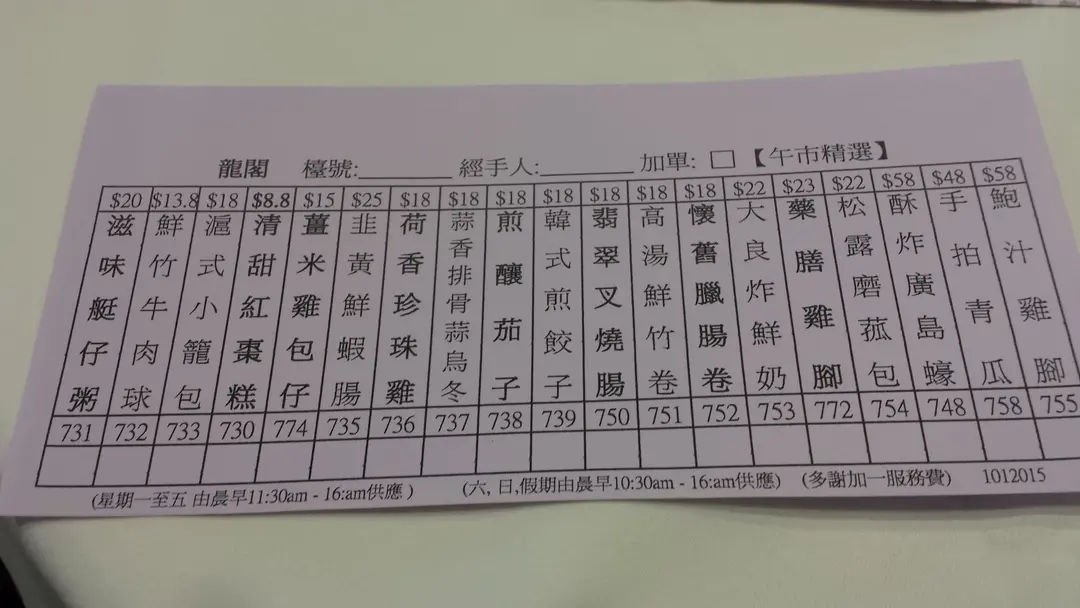 龍閣 檯號:________ 經手人:________ 加單: □ 【午市精選】
$20 $13.8 $18 $8.8 $15 $25 $18 $18 $18 $18 $18 $18 $18 $22 $23 $22 $58 $48 $58
滋味艇仔粥
鮮竹牛肉球
滬式小籠包
清甜紅棗糕
薑米雞包仔
韭黃鮮蝦腸
荷香珍珠雞
蒜香排骨蒜烏冬
煎釀茄子
韓式煎餃子
翡翠叉燒腸
高湯鮮竹卷
懷舊臘腸卷
大良炸鮮奶
藥膳雞腳
松露磨菰包
酥炸廣島蠔
手拍青瓜
鮑汁雞腳
731 732 733 730 774 735 736 737 738 739 750 751 752 753 772 754 748 758 755
(星期一至五 由晨早11:30am - 16:am供應 ) (六, 日,假期由晨早10:30am - 16:am供應) (多謝加一服務費) 1012015